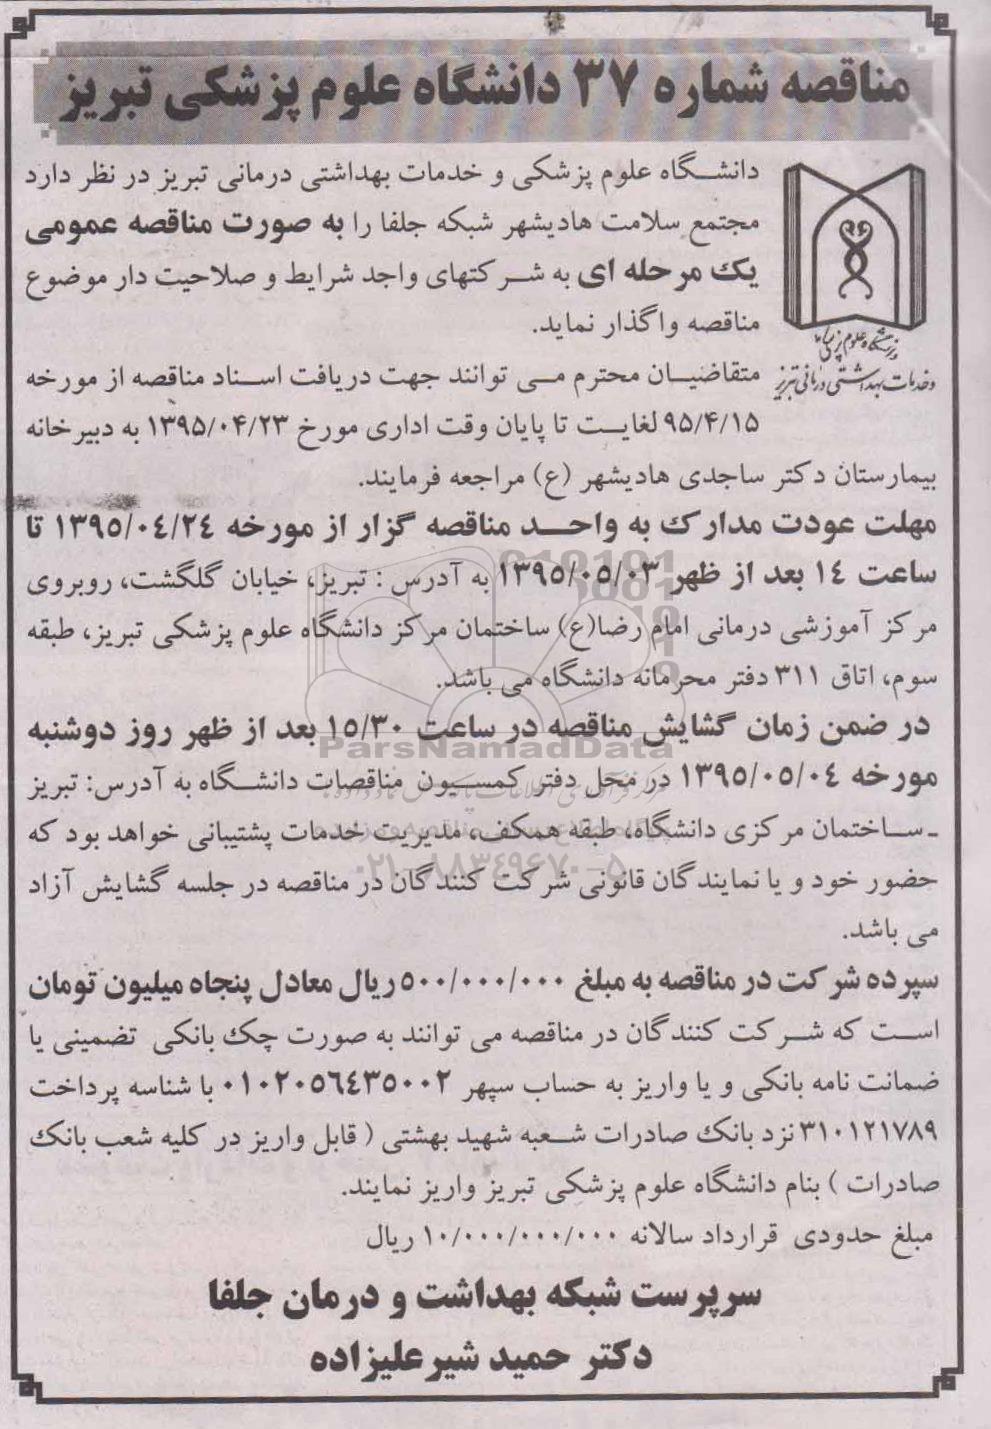 مناقصه شماره ۳۷ دانشگاه علوم پزشکی تبریز
دانشگاه علوم پزشکی و خدمات بهداشتی درمانی تبریز در نظر دارد
مجتمع سلامت هادیشهر شبکه جلفا را به صورت مناقصه عمومی
یک مرحله ای به شرکتهای واجد شرایط و صلاحیت دار موضوع
مناقصه واگذار نماید.
دانشگاه علوم پزشکی
و خدمات بهداشتی درمانی تبریز
متقاضیان محترم می توانند جهت دریافت اسناد مناقصه از مورخه
۹۵/۴/۱۵ لغایت تا پایان وقت اداری مورخ ۱۳۹۵/۰۴/۲۳ به دبیرخانه
بیمارستان دکتر ساجدی هادیشهر (ع) مراجعه فرمایند.
مهلت عودت مدارک به واحد مناقصه گزار از مورخه ۱۳۹۵/۰۴/۲۴ تا
ساعت ۱۴ بعد از ظهر ۱۳۹۵/۰۵/۰۳ به آدرس : تبریز، خیابان گلگشت، روبروی
مرکز آموزشی درمانی امام رضا(ع) ساختمان مرکز دانشگاه علوم پزشکی تبریز، طبقه
سوم، اتاق ۳۱۱ دفتر محرمانه دانشگاه می باشد.
در ضمن زمان گشایش مناقصه در ساعت ۱۵/۳۰ بعد از ظهر روز دوشنبه
ParsNamadData
مورخه ۱۳۹۵/۰۵/۰۴ در محل دفتر کمسیون مناقصات دانشگاه به آدرس: تبریز
ـ ساختمان مرکزی دانشگاه، طبقه همکف، مدیریت خدمات پشتیبانی خواهد بود که
۰۲۱-۸۸۳۴۹۶۷۰-۵
حضور خود و یا نمایندگان قانونی شرکت کنندگان در مناقصه در جلسه گشایش آزاد
می باشد.
سپرده شرکت در مناقصه به مبلغ ۵۰۰/۰۰۰/۰۰۰ ریال معادل پنجاه میلیون تومان
است که شرکت کنندگان در مناقصه می توانند به صورت چک بانکی تضمینی یا
ضمانت نامه بانکی و یا واریز به حساب سپهر ۰۱۰۲۰۵۶۴۳۵۰۰۲ با شناسه پرداخت
۳۱۰۱۲۱۷۸۹ نزد بانک صادرات شعبه شهید بهشتی ( قابل واریز در کلیه شعب بانک
صادرات ) بنام دانشگاه علوم پزشکی تبریز واریز نمایند.
مبلغ حدودی قرارداد سالانه ۱۰/۰۰۰/۰۰۰/۰۰۰ ریال
سرپرست شبکه بهداشت و درمان جلفا
دکتر حمید شیرعلیزاده